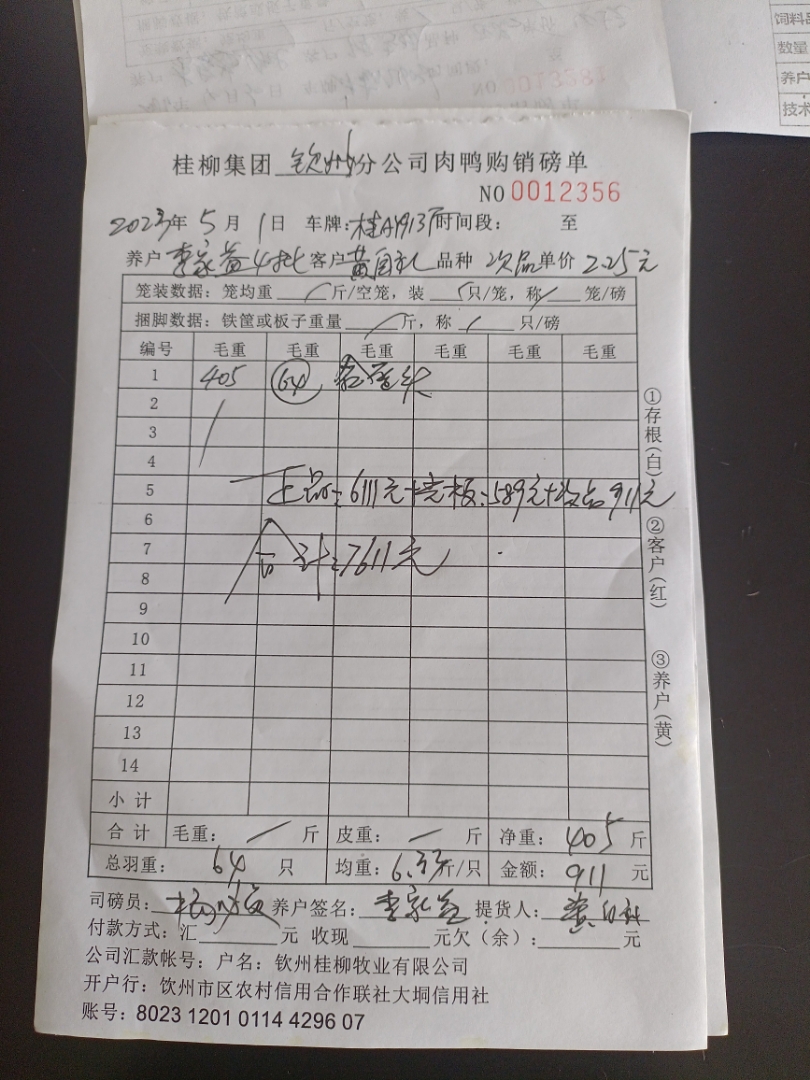 饲料
数量
养户
技术
NO 0013281
桂柳集团 钦州 分公司肉鸭购销磅单
NO 0012356
2023年 5 月 1 日 车牌: 时间段: 至
养户 李家益4批 客户 黄自礼 品种 次品 单价 2.25元
笼装数据: 笼均重 / 斤/空笼, 装 / 只/笼, 称 / 笼/磅
捆脚数据: 铁筐或板子重量 / 斤, 称 / 只/磅
编号 毛重 毛重 毛重 毛重 毛重 毛重
1 405 64
2
3
4
5 正品: 6111元+ 板: 589元+次品911元
6
7 合计: 7611元
8
9
10
11
12
13
14
小计
合计 毛重: / 斤 皮重: / 斤 净重: 405 斤
总羽重: 64 只 均重: 6.33斤/只 金额: 911 元
①存根(白) ②客户(红) ③养户(黄)
司磅员: 养户签名: 李家益 提货人: 黄自礼
付款方式: 汇 元 收现 元欠(余): 元
公司汇款帐号: 户名: 钦州桂柳牧业有限公司
开户行: 钦州市区农村信用合作联社大垌信用社
账号: 8023 1201 0114 4296 07